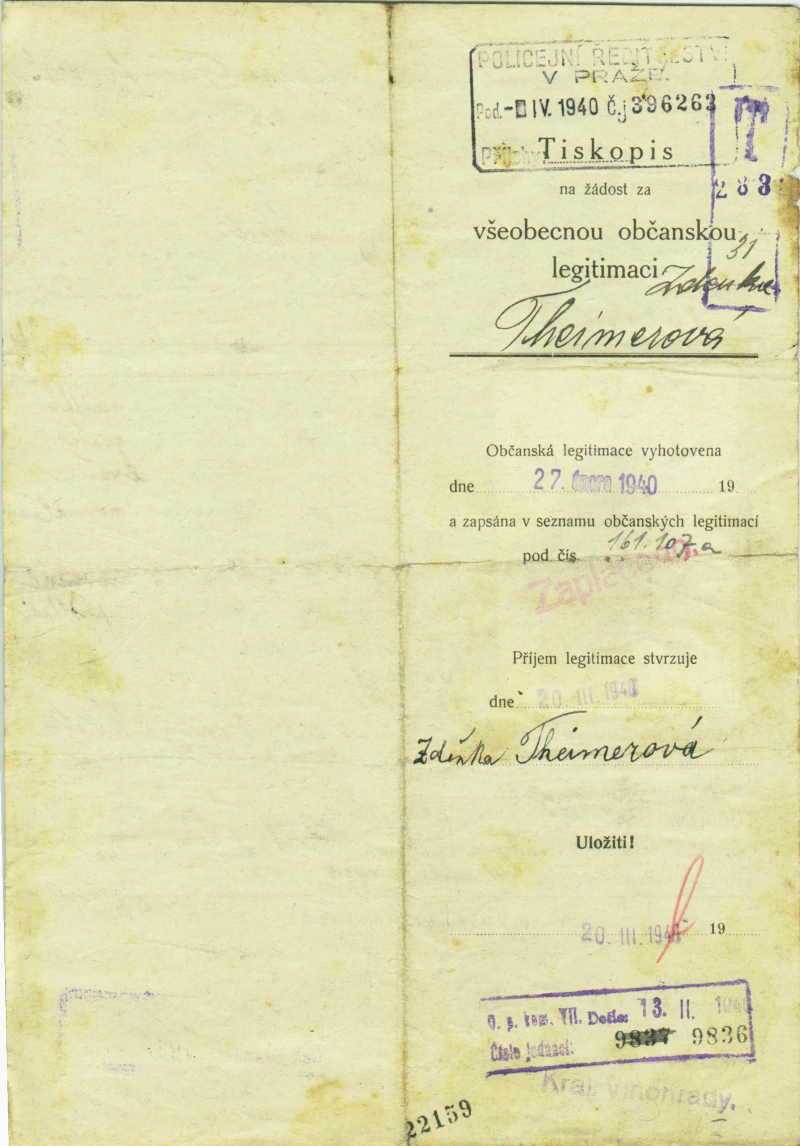 POLICEJNÍ ŘEDITELSTVÍ
V PRAZE.
Pod. - IV. 1940 Č.j. 396263
Přílohy
T
283
Tiskopis
na žádost za
všeobecnou občanskou
31
legitimaci Zdeňka
Theimerová
Občanská legitimace vyhotovena
dne 27. února 1940 19
a zapsána v seznamu občanských legitimací
pod čís. 161.107a
Zaplaceno.
Příjem legitimace stvrzuje
dne 20 III 1940
Zdeňka Theimerová
Uložiti!
20. III. 194 19
VII. Došlo: 13. II. 1940
Číslo jednací: 9837 9836
Král. Vinohrady.
22159